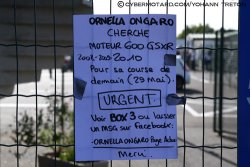 © CYBERMOTARD.COM/YOHANN TRETON
ORNELLA ONGARO
CHERCHE
MOTEUR 600 GSXR
2010
Pour sa course de
demain (29 Mai).
URGENT.
Voir BOX 3 ou laisser
un MSG sur Facebook:
ORNELLA ONGARO Page
Merci